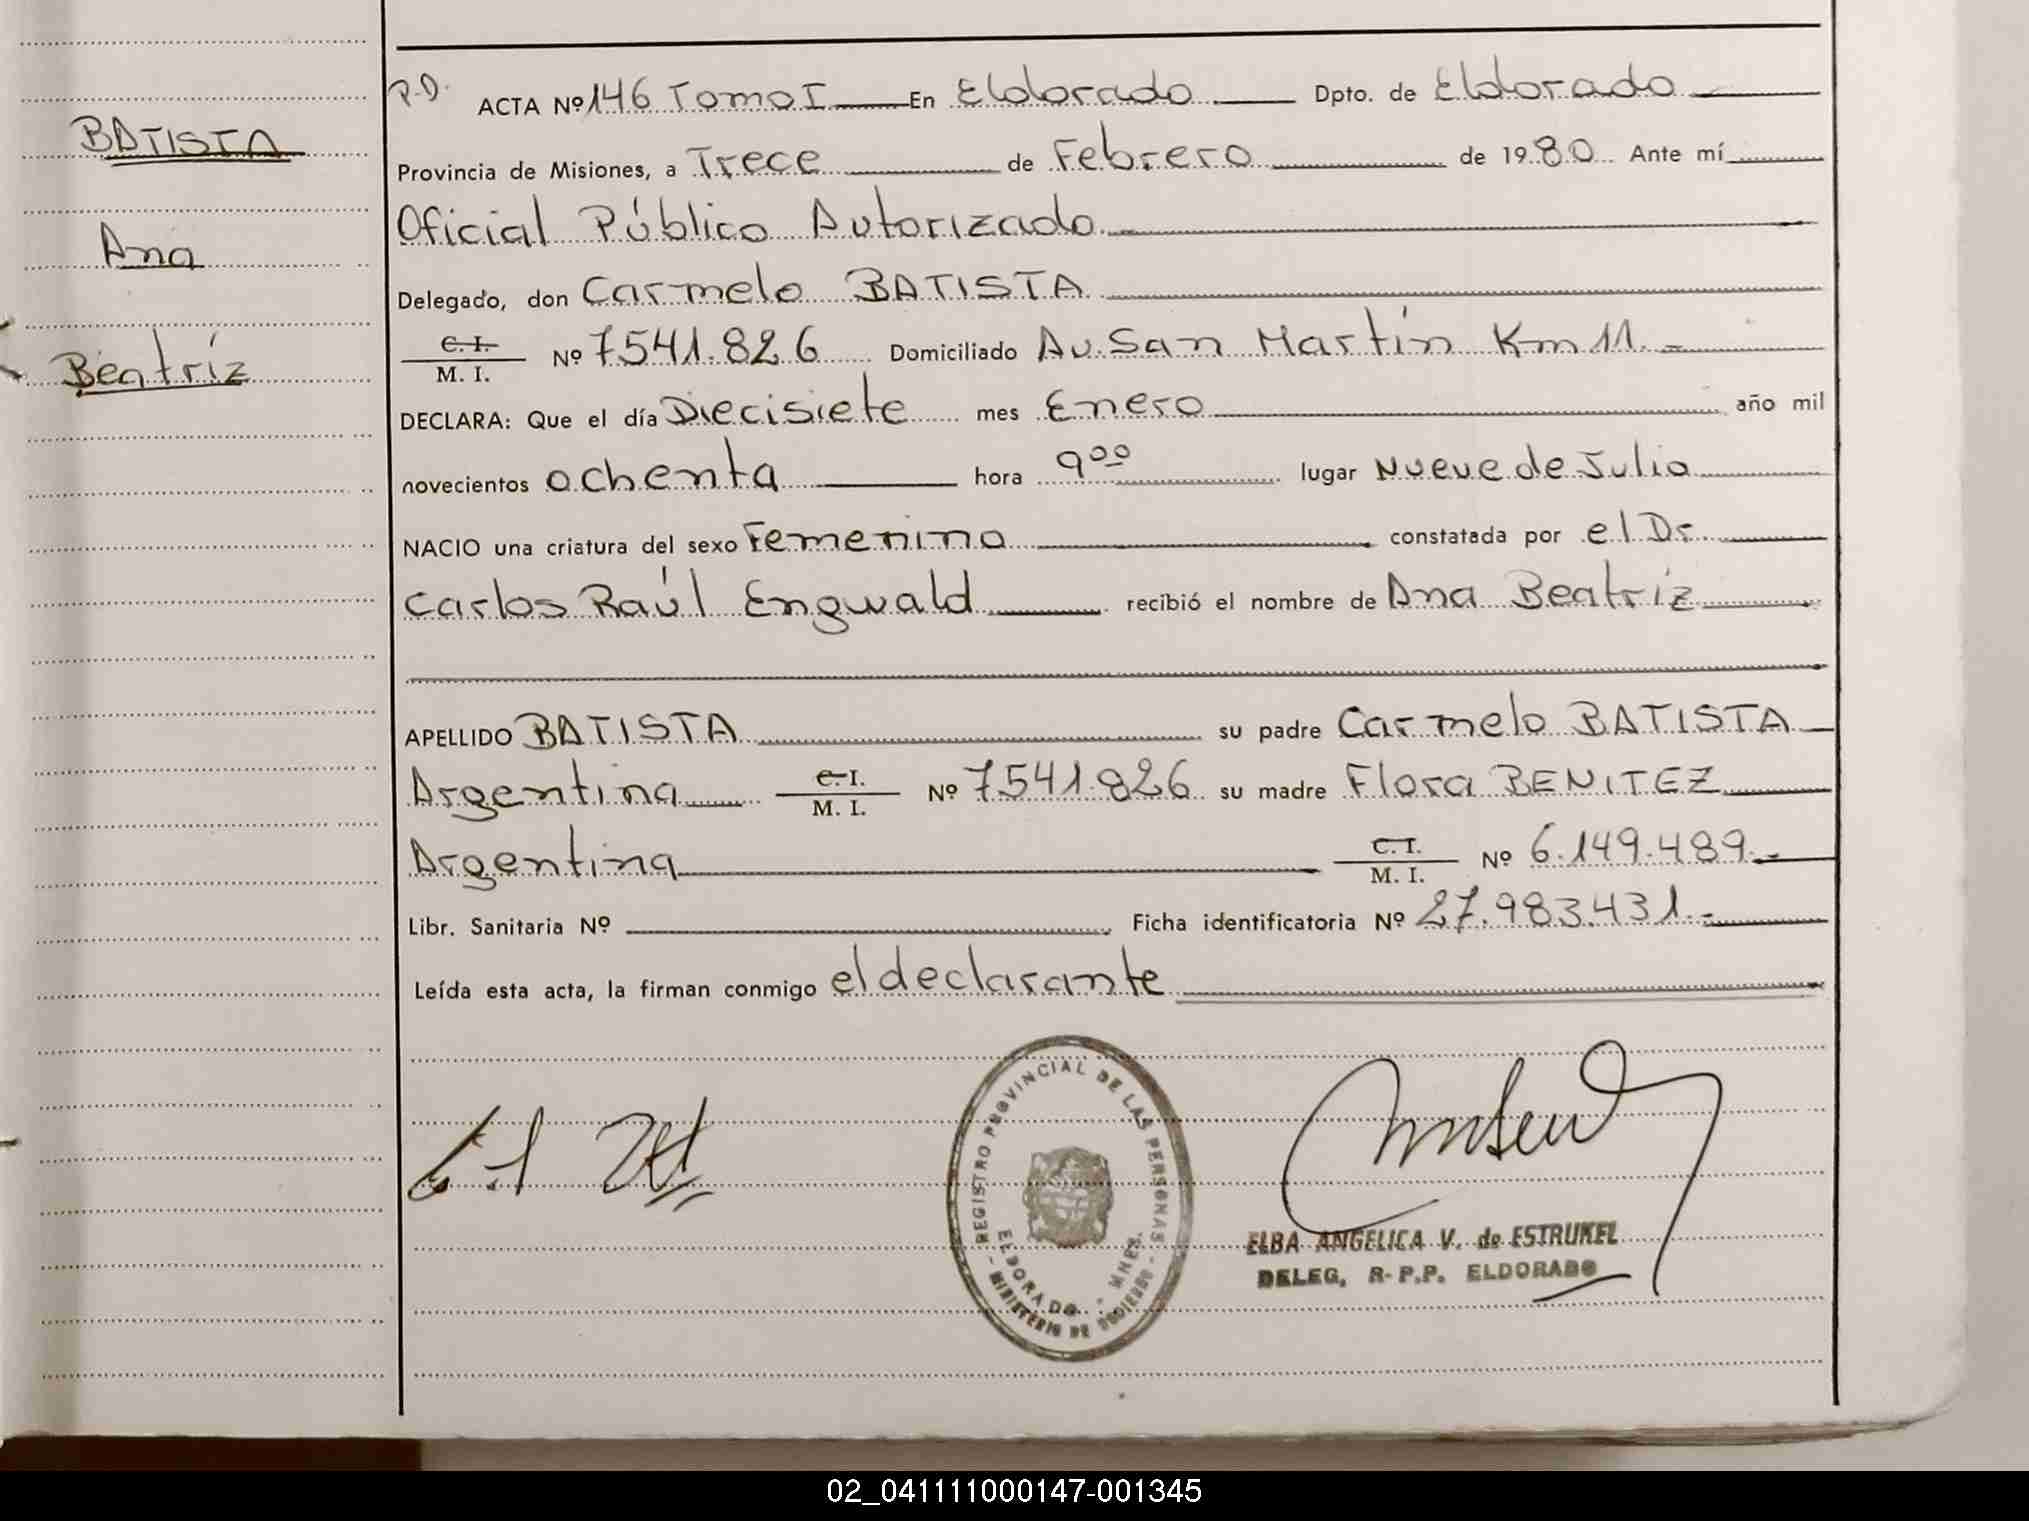 BATISTA
Ana
Beatríz
P.D. ACTA Nº 146 Tomo I En Eldorado Dpto. de Eldorado
Provincia de Misiones, a Trece de Febrero de 1980 Ante mí
Oficial Público Autorizado
Delegado, don Carmelo BATISTA
C. I.
M. I. Nº 7541.826 Domiciliado Av. San Martín Km 11.-
DECLARA: Que el día Diecisiete mes Enero año mil
novecientos ochenta hora 9 00 lugar Nueve de Julio
NACIO una criatura del sexo Femenino constatada por el Dr.
Carlos Raúl Engwald recibió el nombre de Ana Beatríz
APELLIDO BATISTA su padre Carmelo BATISTA
Argentina C. I. M. I. Nº 7541.826 su madre Flora BENITEZ
Argentina C. I. M. I. Nº 6.149.489.-
Libr. Sanitaria Nº Ficha identificatoria Nº 27.983.431.-
Leída esta acta, la firman conmigo el declarante
REGISTRO PROVINCIAL DE LAS PERSONAS - MINISTERIO DE GOBIERNO -
ELDORADO - MNES.
ELBA ANGELICA V. de ESTRUKEL
DELEG, R-P.P. ELDORADO
02_041111000147-001345